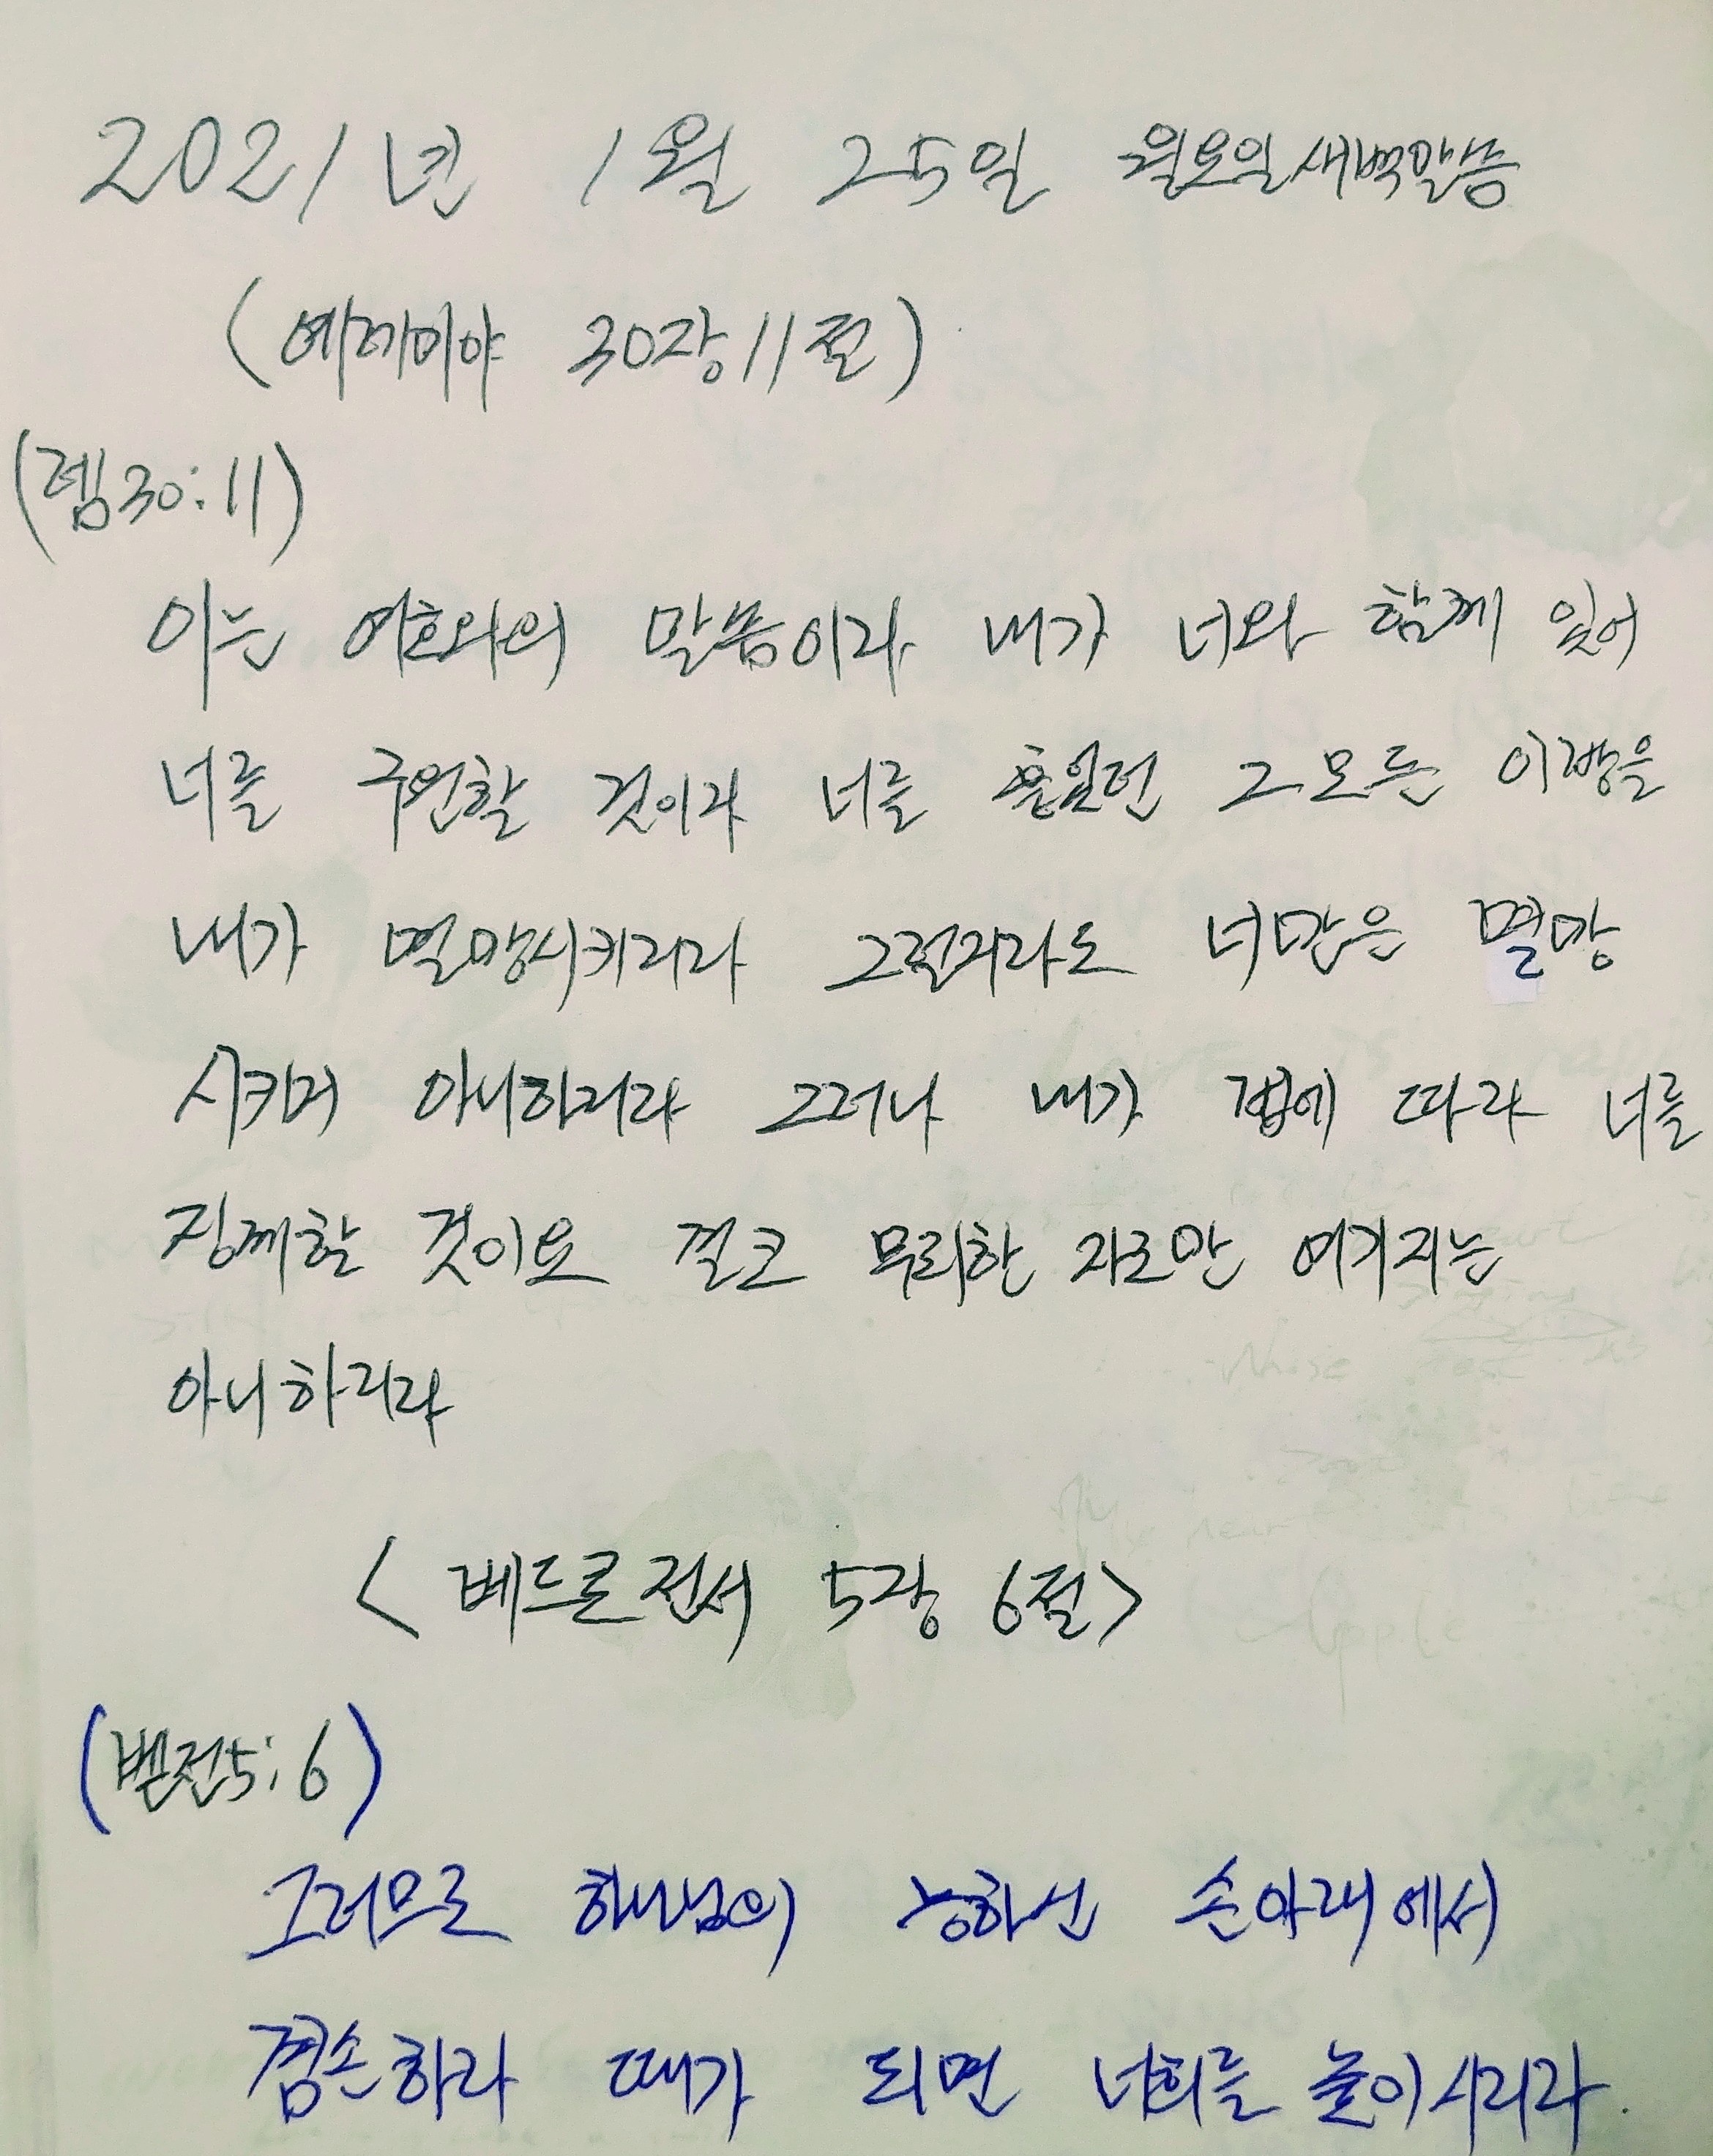 2021년 1월 25일 월요일새벽말씀
(예레미야 30장11절)
(렘30:11)
이는 여호와의 말씀이라 내가 너와 함께 있어
너를 구원할 것이라 너를 흩었던 그 모든 이방을
내가 멸망시키리라 그럴지라도 너만은 멸망
시키지 아니하리라 그러나 내가 법에 따라 너를
징계할 것이요 결코 무죄한 자로만 여기지는
아니하리라
<베드로전서 5장 6절>
(벧전5:6)
그러므로 하나님의 능하신 손아래에서
겸손하라 때가 되면 너희를 높이시리라.